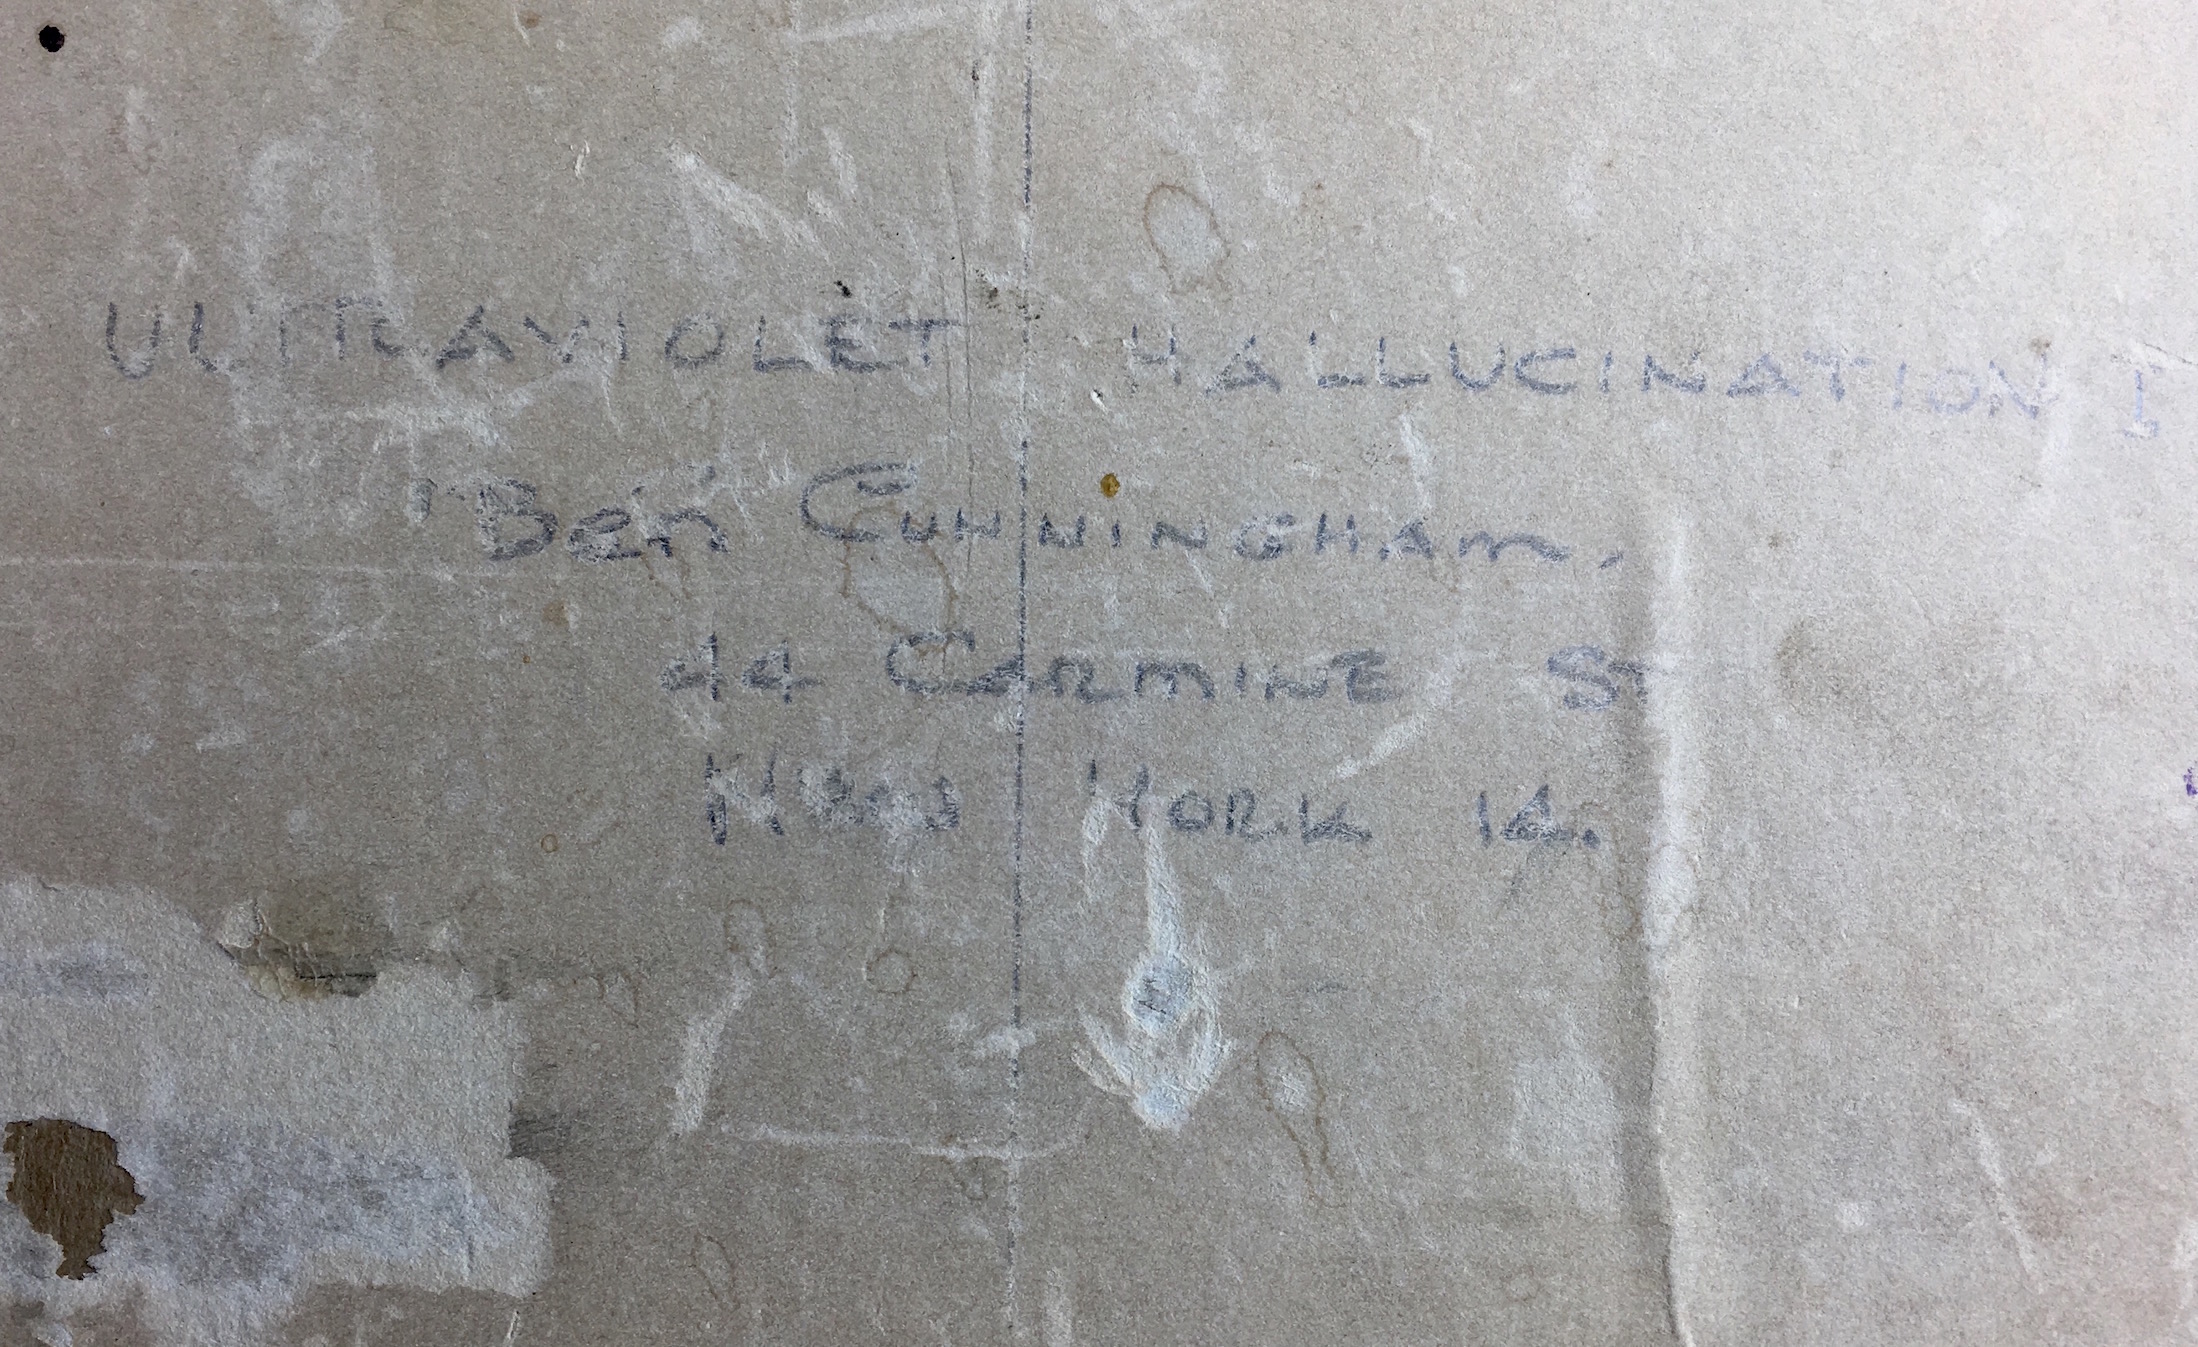 ULTRAVIOLET HALLUCINATION I
"Ben" CUNNINGHAM.
44 CARMINE ST
NEW YORK 14.